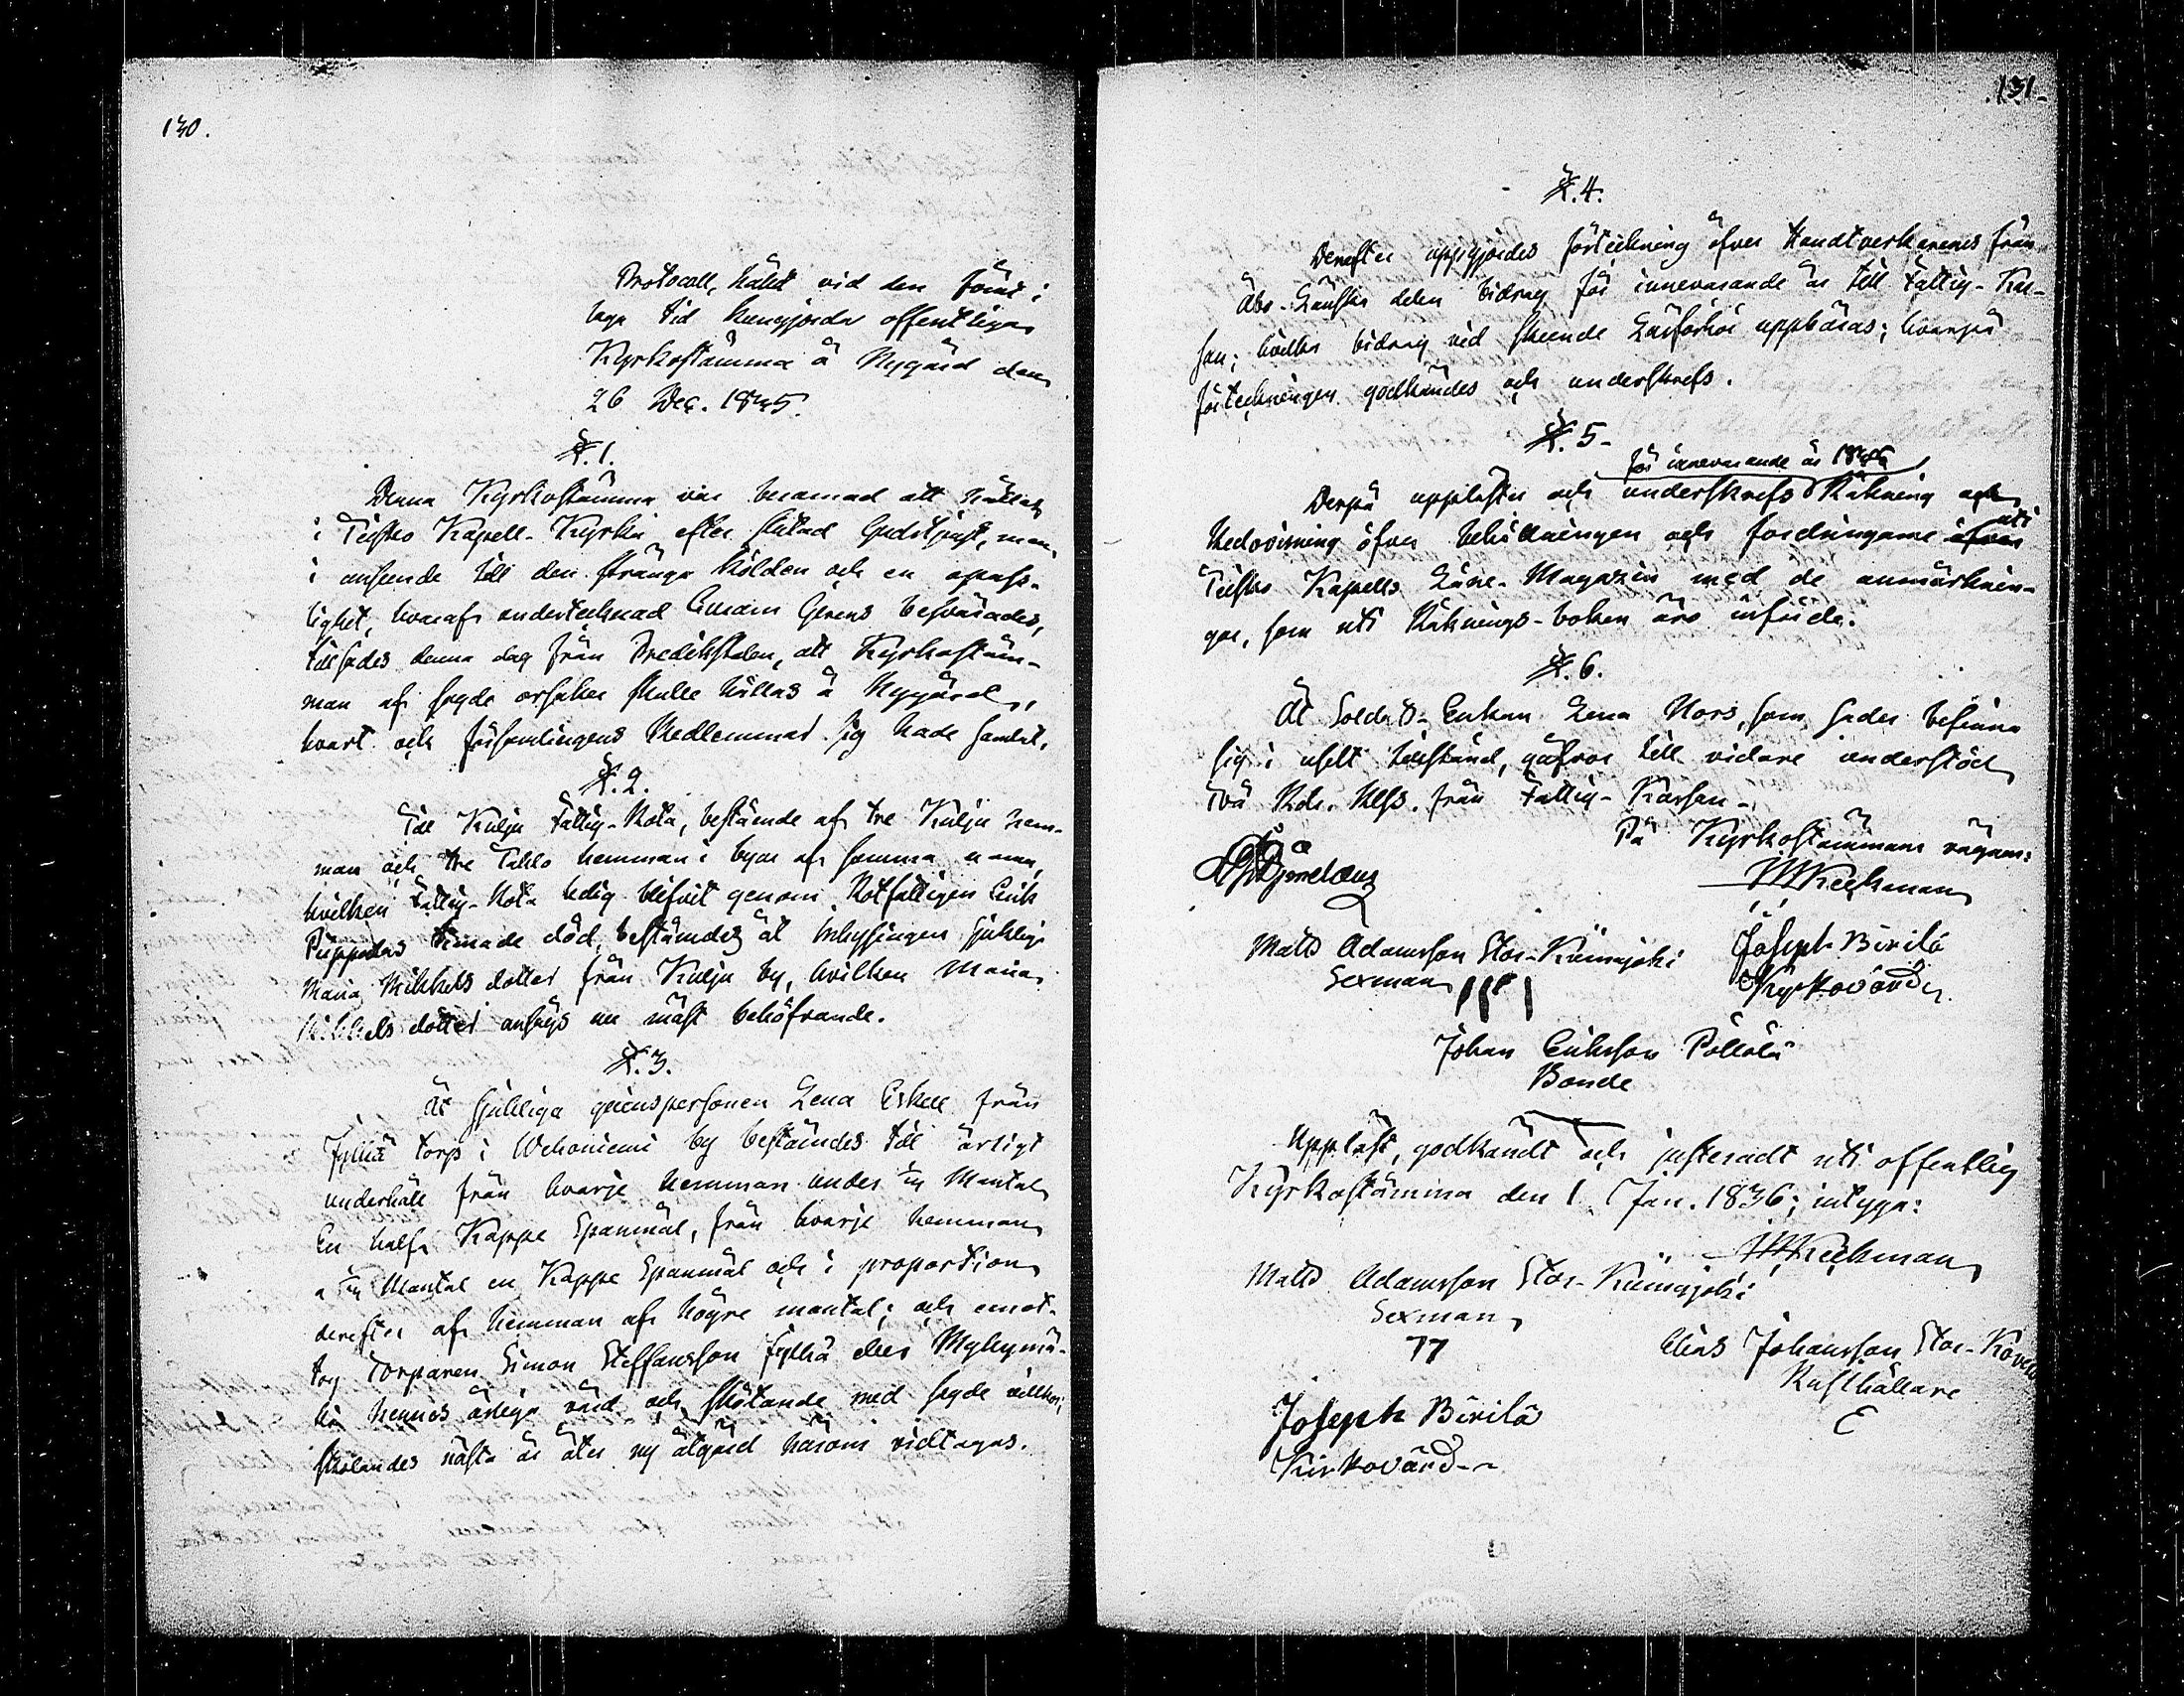 130.
Protocoll, hållet vid den förut i
laga tid kungjorda offentliga
Kyrkostämma å Nygård den
26 Dec. 1835.
§.1.
Denna Kyrkostämma var beramad att hållas
i Teisko Kapell-Kyrka efter slutad Gudstjenst, men
i anseende till den stränga kölden och en opass-
lighet, hvaraf undertecknad besvärades,
tillsades denna dag från Predikstolen, att Kyrkostäm-
man af sagde orsaker skulle hållas å Nygård,
hvart och församlingens Medlemmar sig hade samlat.
§.2.
Till Kulju Fattig-Rota, bestående af tre Kulju hem-
man och tre Taklo hemman i byar af samma namn,
hvilken Fattig-Rota ledig blifvit genom Rotfattigen Erik
timade död, bestämdes åt Inhysingen sjuklige
Maria Mikkels dotter från Kulju by, hvilken Maria
Mikkels dotter ansågs nu mäst behöfvande.
§.3.
Åt sjukliga qvinspersonen Lena Eskel från
Jylhä torp i Wehoniemi by bestämdes till årligt
underhåll från hvarje hemman under Mantal
En half Kappe Spanmål, från hvarje hemman
a Mantal en Kappe Spanmål och i proportion
derefter af hemman af högre mantal; och emot-
tog Torparen Simon Steffansson Jylhä eller Myllymä-
ki hennes årliga vård och skötande med sagde villkor,
skolandes nästa år åter ny åtgärd härom vidtagas.
131.
§.4.
Derefter uppgjordes förteckning öfver Handtverkarenes från
Åbo-Länska delen bidrag för innevarande år till Fattig-Kas-
san; hvilka bidrag vid skeende Läsförhör uppbäras; hvarpå
förteckningen godkändes och underskrefs.
§.5.
för innevarande år
Derpå upplästes och underskrefs Räkning och
Redovisning öfver behållningen och fordringarne öfver uti
Teisko Kapells Låne-Magazin med de anmärknin-
gar, som uti Räknings-boken äro införde.
§.6.
Åt Soldats-Enkan Lena Mors, som sades befinna
sig i uselt tillstånd, gåfvos till vidare understöd
Två Rdr. Rgs. från Fattig-Kassan.
På Kyrkostämmans vägnar:
Keckman
Matts Adamsson Stor-Kuiwajoki
Sexman
Joseph Birilä
Kyrkovärd
Johan Eriksson Pöllölä
Bonde
Uppläst, godkändt och justeradt uti offentlig
Kyrkostämma den 1 Jan. 1836; intyga:
Keckman
Matts Adamsson Stor-Kuiwajoki
Sexman
Elias Johansson Stor-
Rusthållare
Joseph Birilä
Kirkovärd